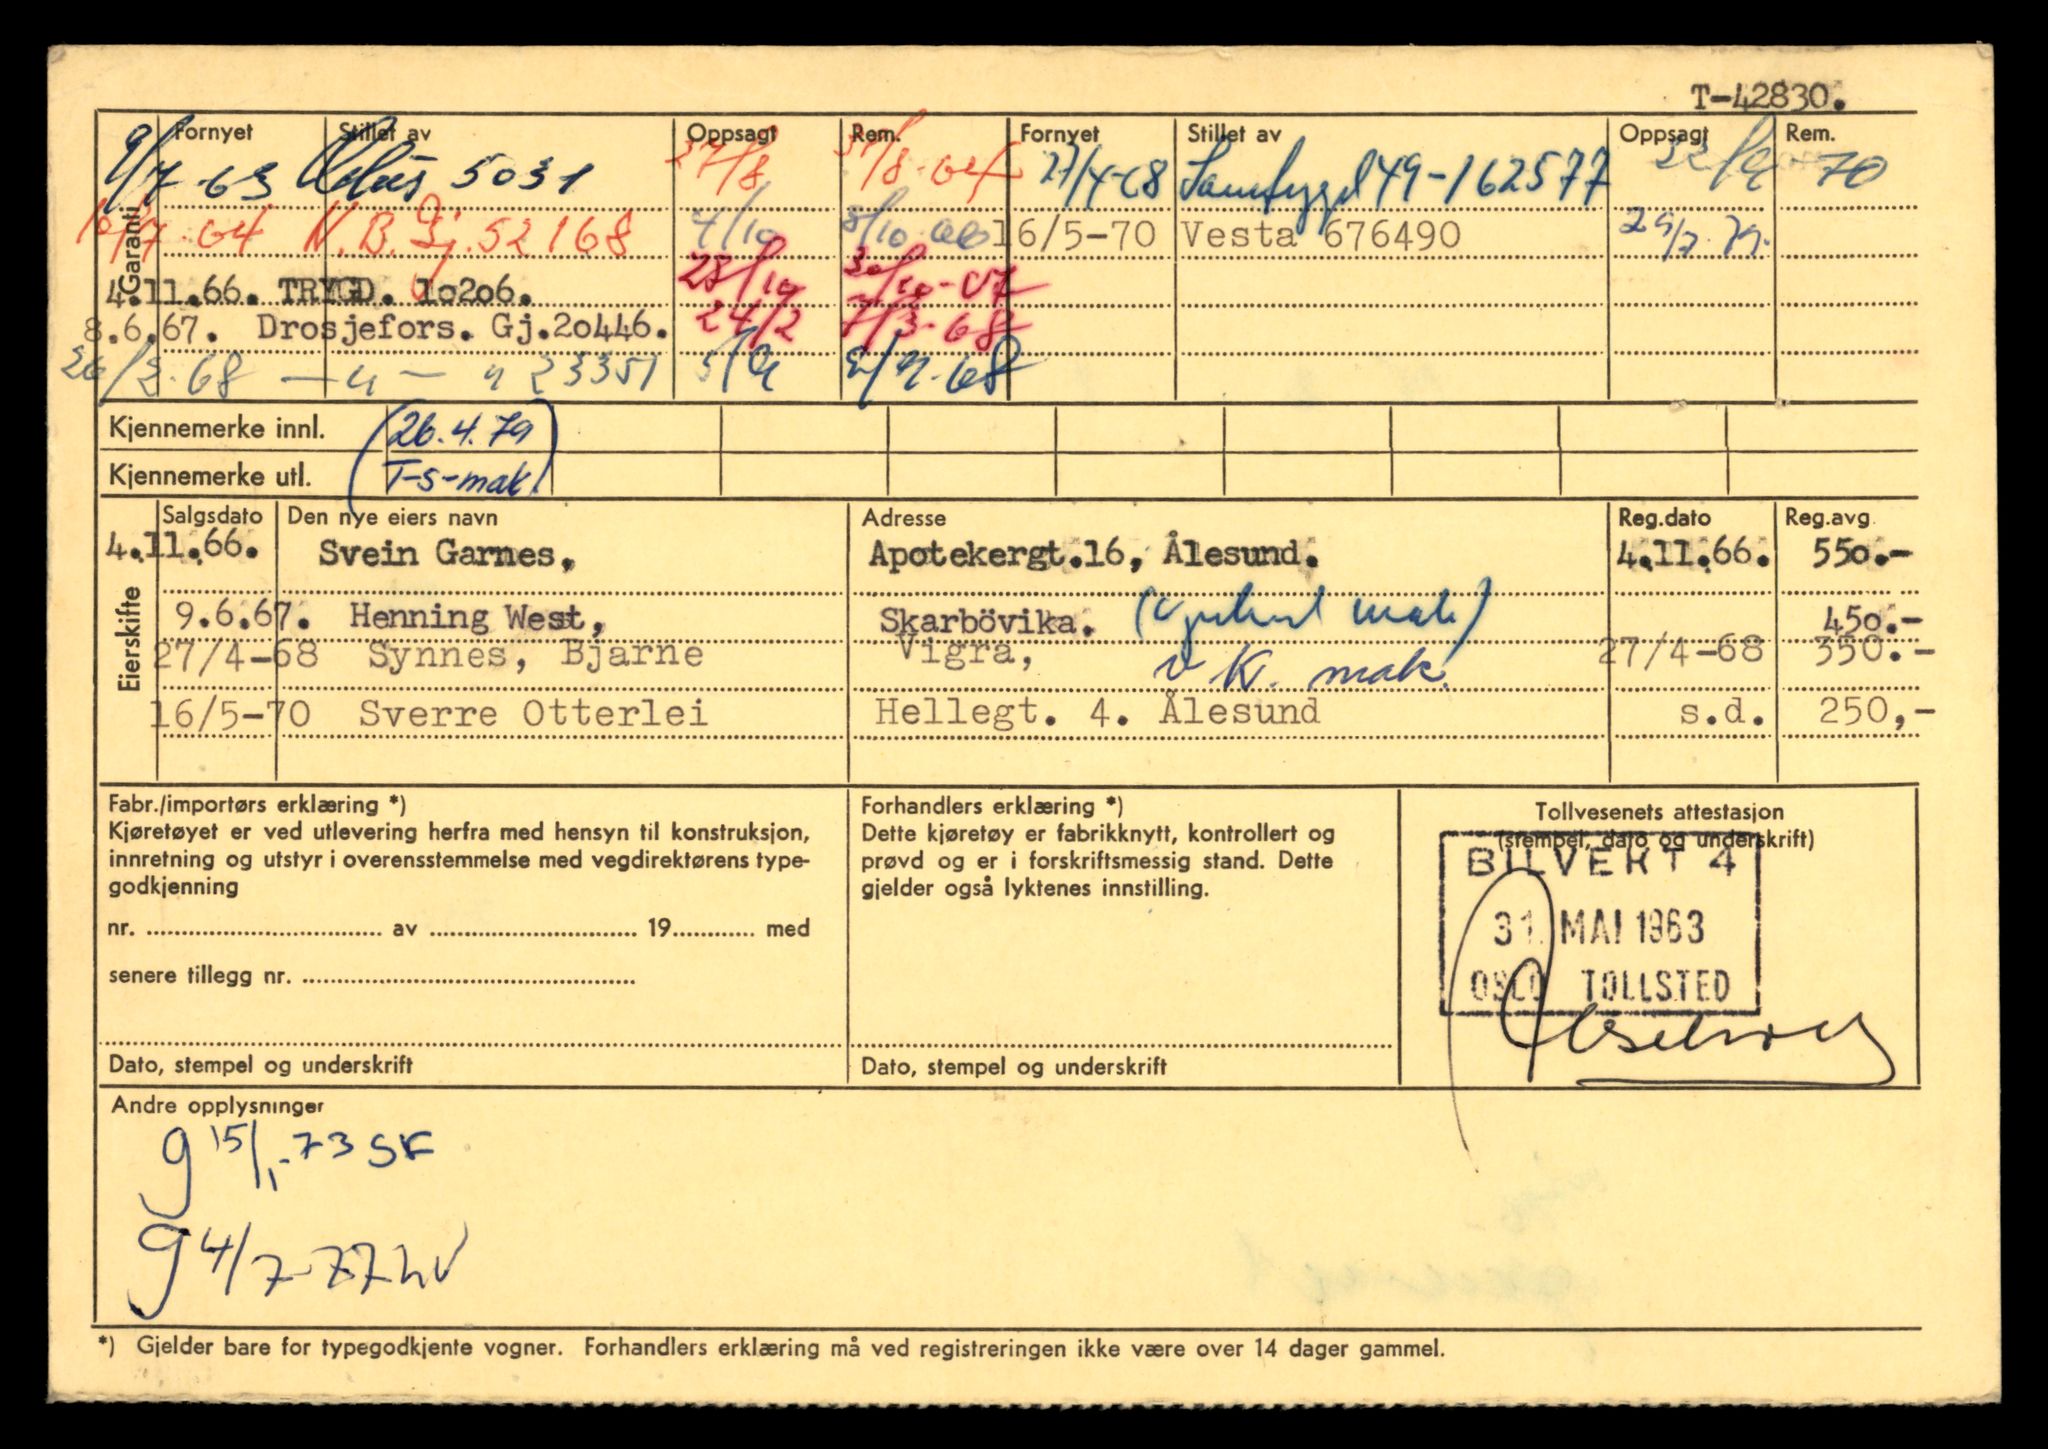 T-42830.
Fornyet Stillet av Oppsagt Rem. Fornyet Stillet av Oppsagt Rem.
9/7-63 5031 27/8 31/8-64 27/4-68 Samtrygd 49-162577 22/9 70
Garanti
10/7-64 N.B. Gj. 52168 4/10 8/10 16/5-70 Vesta 676490
4.11.66. TRYGD. 10206. 28/10 30/10-67
8.6.67. Drosjefors. Gj.20446. 24/2 7/3-68
26/3-68 —"— " 23351 5/9 9-68
Kjennemerke innl. (26.4.79
Kjennemerke utl. T-S-mak)
Eierskifte
Salgsdato Den nye eiers navn Adresse Reg.dato Reg.avg.
4.11.66. Svein Garnes, Apotekergt.16, Ålesund. 4.11.66. 550.-
9.6.67. Henning West, Skarbövika. mak) 450.-
27/4-68 Synnes, Bjarne Vigra, v K. mak. 27/4-68 350.-
16/5-70 Sverre Otterlei Hellegt. 4. Ålesund s.d. 250,-
Fabr./importørs erklæring *)
Kjøretøyet er ved utlevering herfra med hensyn til konstruksjon,
innretning og utstyr i overensstemmelse med vegdirektørens type-
godkjenning
nr. .................... av .................... 19............ med
senere tillegg nr. ....................
Dato, stempel og underskrift
Forhandlers erklæring *)
Dette kjøretøy er fabrikknytt, kontrollert og
prøvd og er i forskriftsmessig stand. Dette
gjelder også lyktenes innstilling.
Dato, stempel og underskrift
Tollvesenets attestasjon
(stempel, dato og underskrift)
BILVERT 4
31. MAI 1963
OSLO TOLLSTED
Andre opplysninger
g 15/1-73 SF
g 4/7-77
*) Gjelder bare for typegodkjente vogner. Forhandlers erklæring må ved registreringen ikke være over 14 dager gammel.